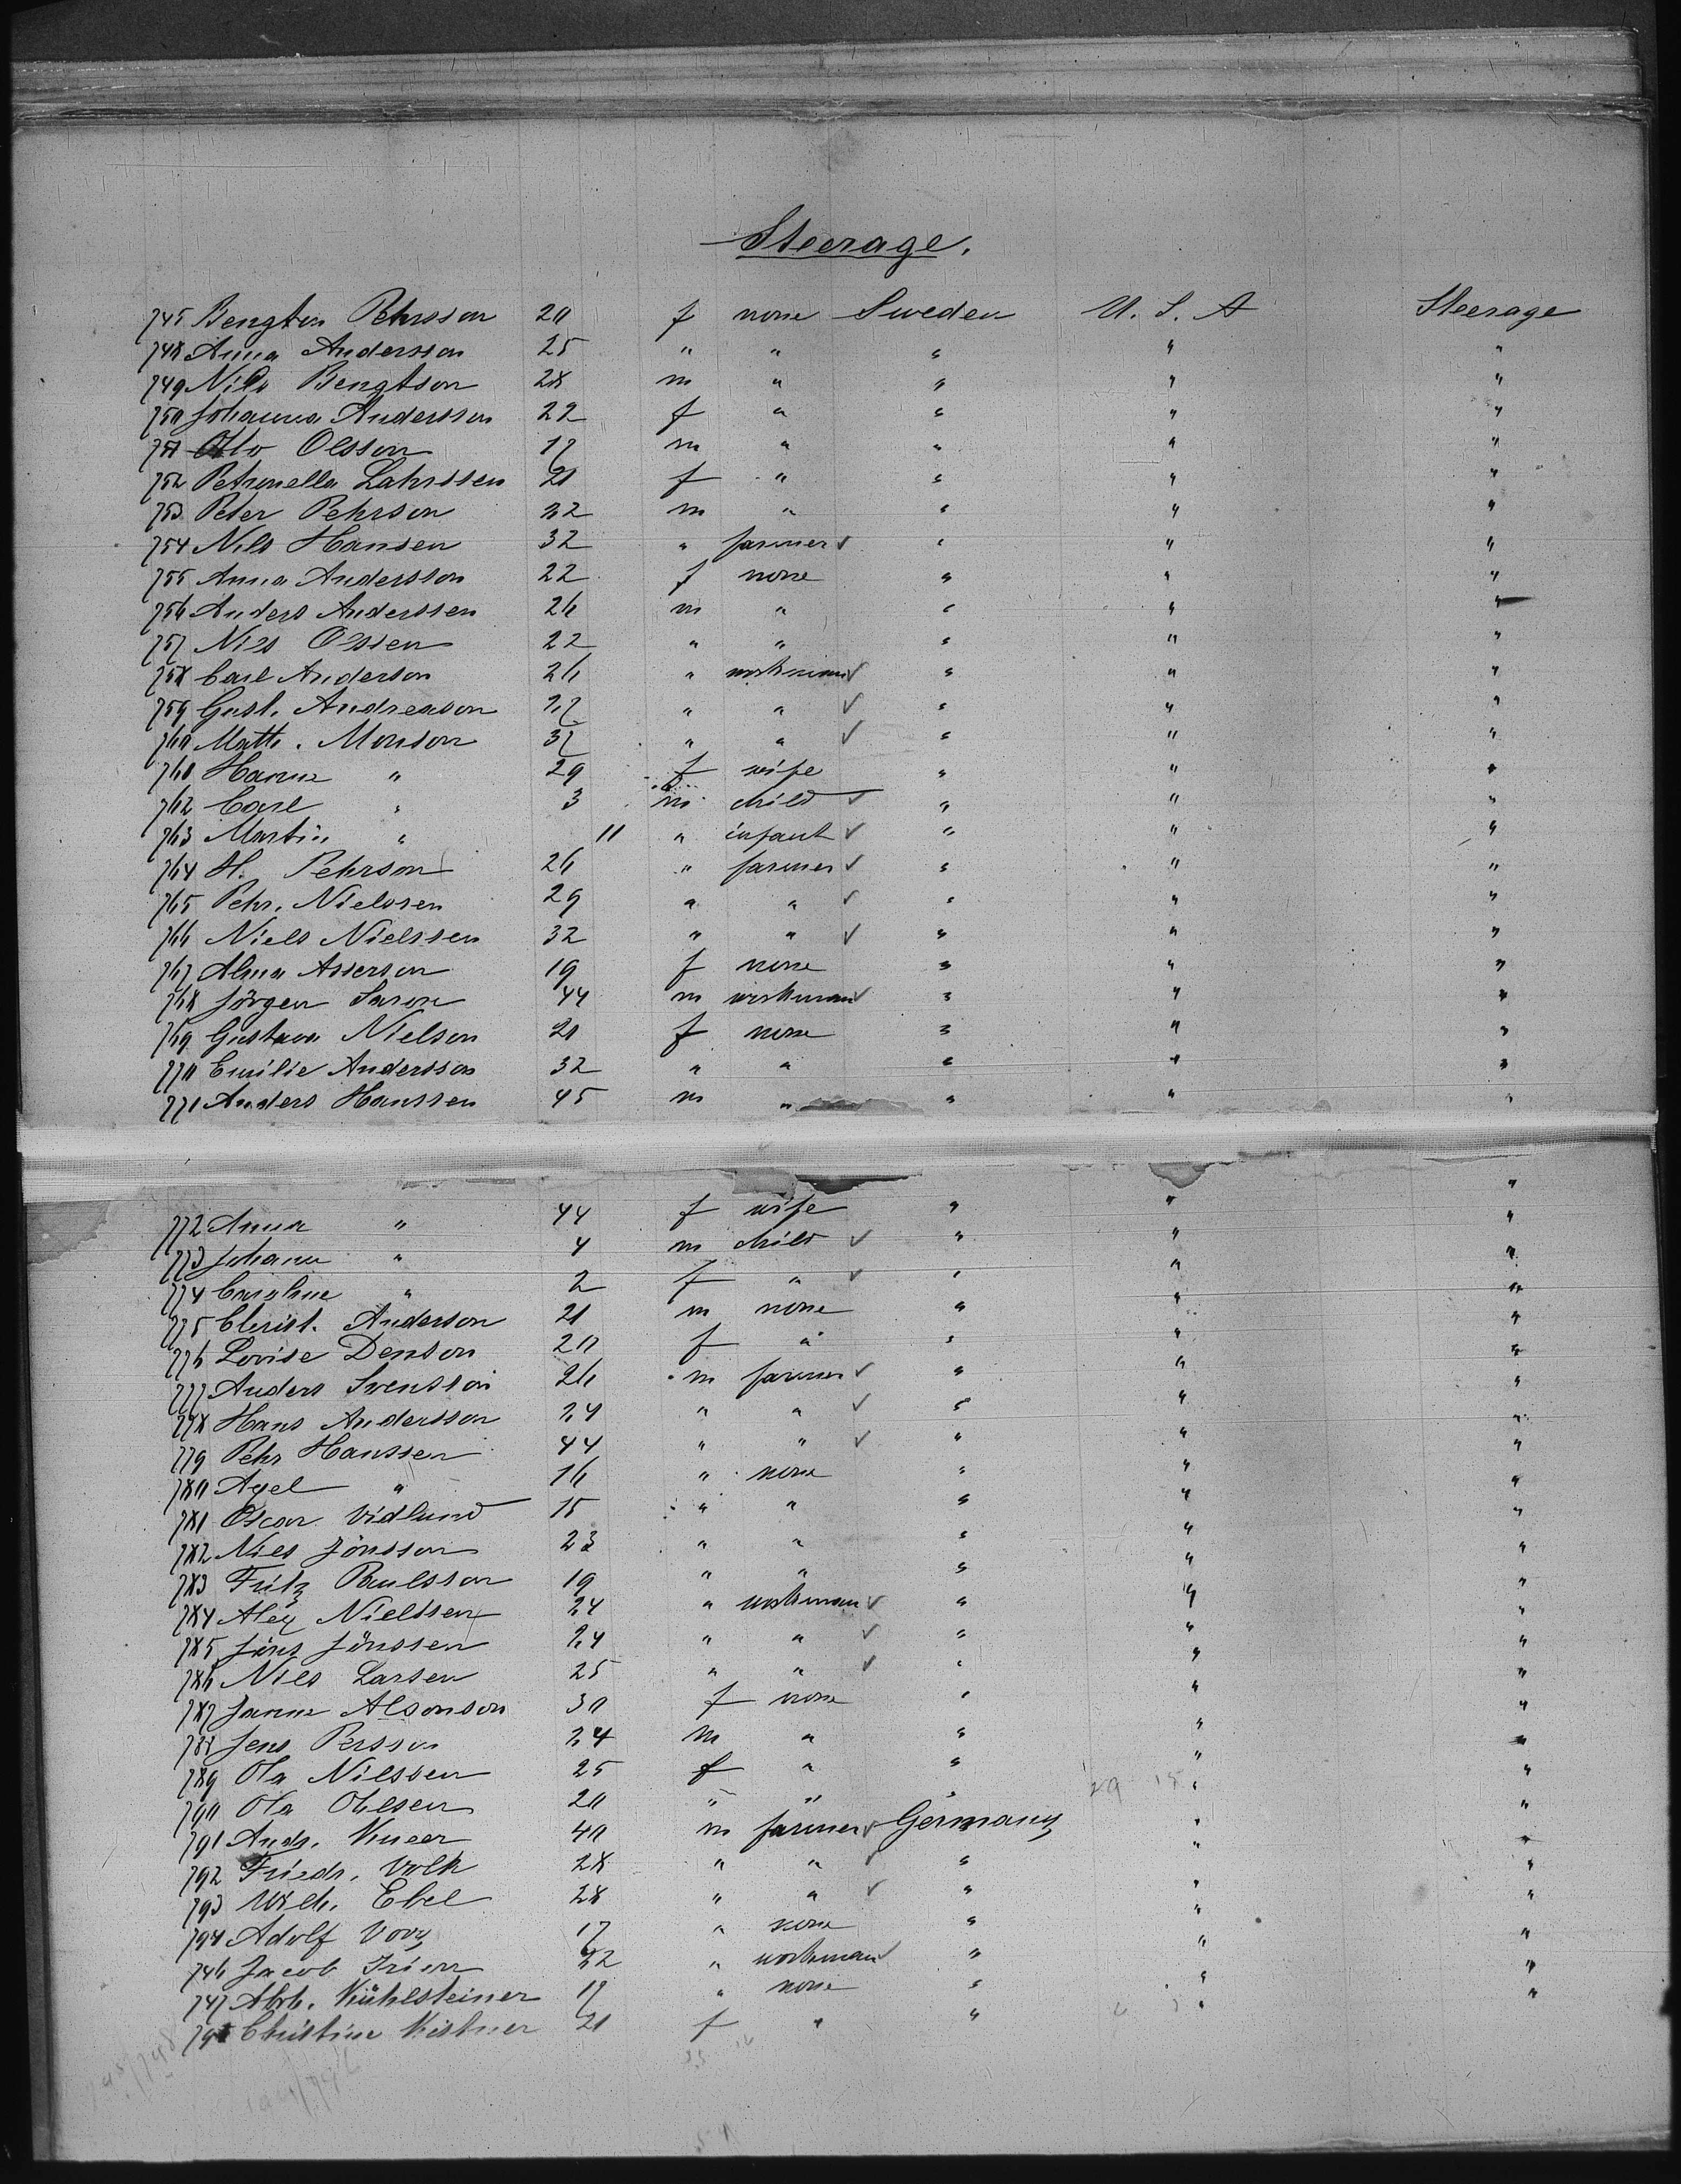 Steerage.
745 Bengton Pehrsson 20 f none Sweden U. S. A Steerage
748 Anna Andersson 25 " " " " "
749 Nils Bengtson 28 m " " " "
750 Johanna Andersson 22 f " " " "
751 Otto Olsson 17 m " " " "
752 Petronella Lahrssen 21 f " " " "
753 Peter Pehrson 22 m " " " "
754 Nils Hansen 32 " farmer ✓ " " "
755 Anna Andersson 22 f none " " "
756 Anders Anderssen 26 m " " " "
757 Nils Olssen 22 " " " " "
758 Carl Anderson 26 " workman ✓ " " "
759 Gust. Andreason 27 " " ✓ " " "
760 Matts. Monson 37 " " ✓ " " "
761 Hanna " 29 f wife " " "
762 Carl " 3 m child ✓ " " "
763 Martin " 11 " infant ✓ " " "
764 H. Pehrson 26 " farmer ✓ " " "
765 Pehr. Nielssen 29 " " ✓ " " "
766 Niels Nielssen 32 " " ✓ " " "
767 Alma Asserson 19 f none " " "
768 Jörgen Saron 44 m workman ✓ " " "
769 Gustava Nielson 21 f none " " "
770 Emilie Andersson 32 " " " " "
771 Anders Hanssen 45 m " " " "
772 Anna " 44 f wife " " "
773 Johann " 4 m child ✓ " " "
774 Caroline " 2 f " ✓ " " "
775 Christ. Anderson 21 m none " " "
776 Lovise Denson 20 f " " " "
777 Anders Svensson 26 m farmer ✓ " " "
778 Hans Andersson 24 " " ✓ " " "
779 Pehr Hanssen 44 " " ✓ " " "
780 Axel " 16 " none " " "
781 Oscar Vidlund 15 " " " " "
782 Nils Jönsson 23 " " " " "
783 Fritz Paulsson 19 " " " " "
784 Alex Nielssen 24 " workman ✓ " " "
785 Jöns Jönssen 24 " " ✓ " " "
786 Nils Larsen 25 " " ✓ " " "
787 Janne Alsonson 30 f none " " "
788 Jens Persson 24 m " " " "
789 Ola Nilssen 25 f " " " "
790 Ola Ohlsen 20 " " " " "
791 Andr. Kneer 40 m farmer ✓ Germany " "
792 Friedr. Volk 28 " " ✓ " " "
793 Wilh. Ebel 28 " " ✓ " " "
794 Adolf Vory 17 " none " " "
746 Jacob Irion 22 " workman ✓ " " "
747 Abrh. Kühlsteiner 17 " none " " "
795 Christine Kistner 21 f " " "